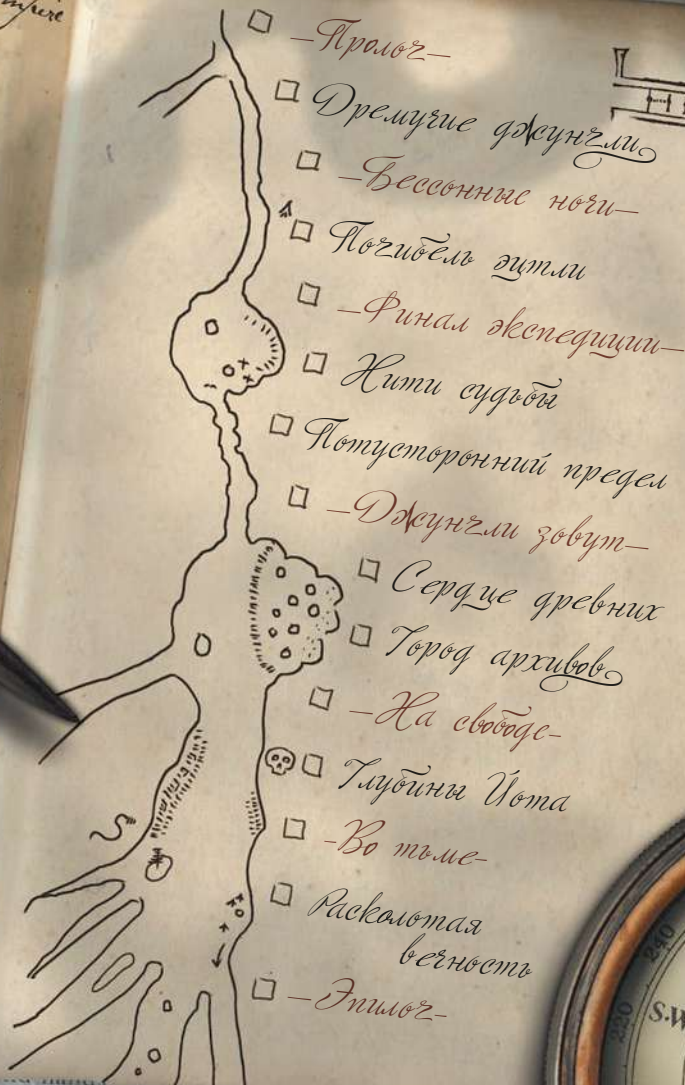 —Пролог—
Дремучие джунгли
—Бессонные ночи—
Погибель эцтли
—Финал экспедиции—
Нити судьбы
Потусторонний предел
—Джунгли зовут—
Сердце древних
Город архивов
—На свободе—
Глубины Йота
—Во тьме—
Расколотая
вечность
—Эпилог—
240
220
S.W